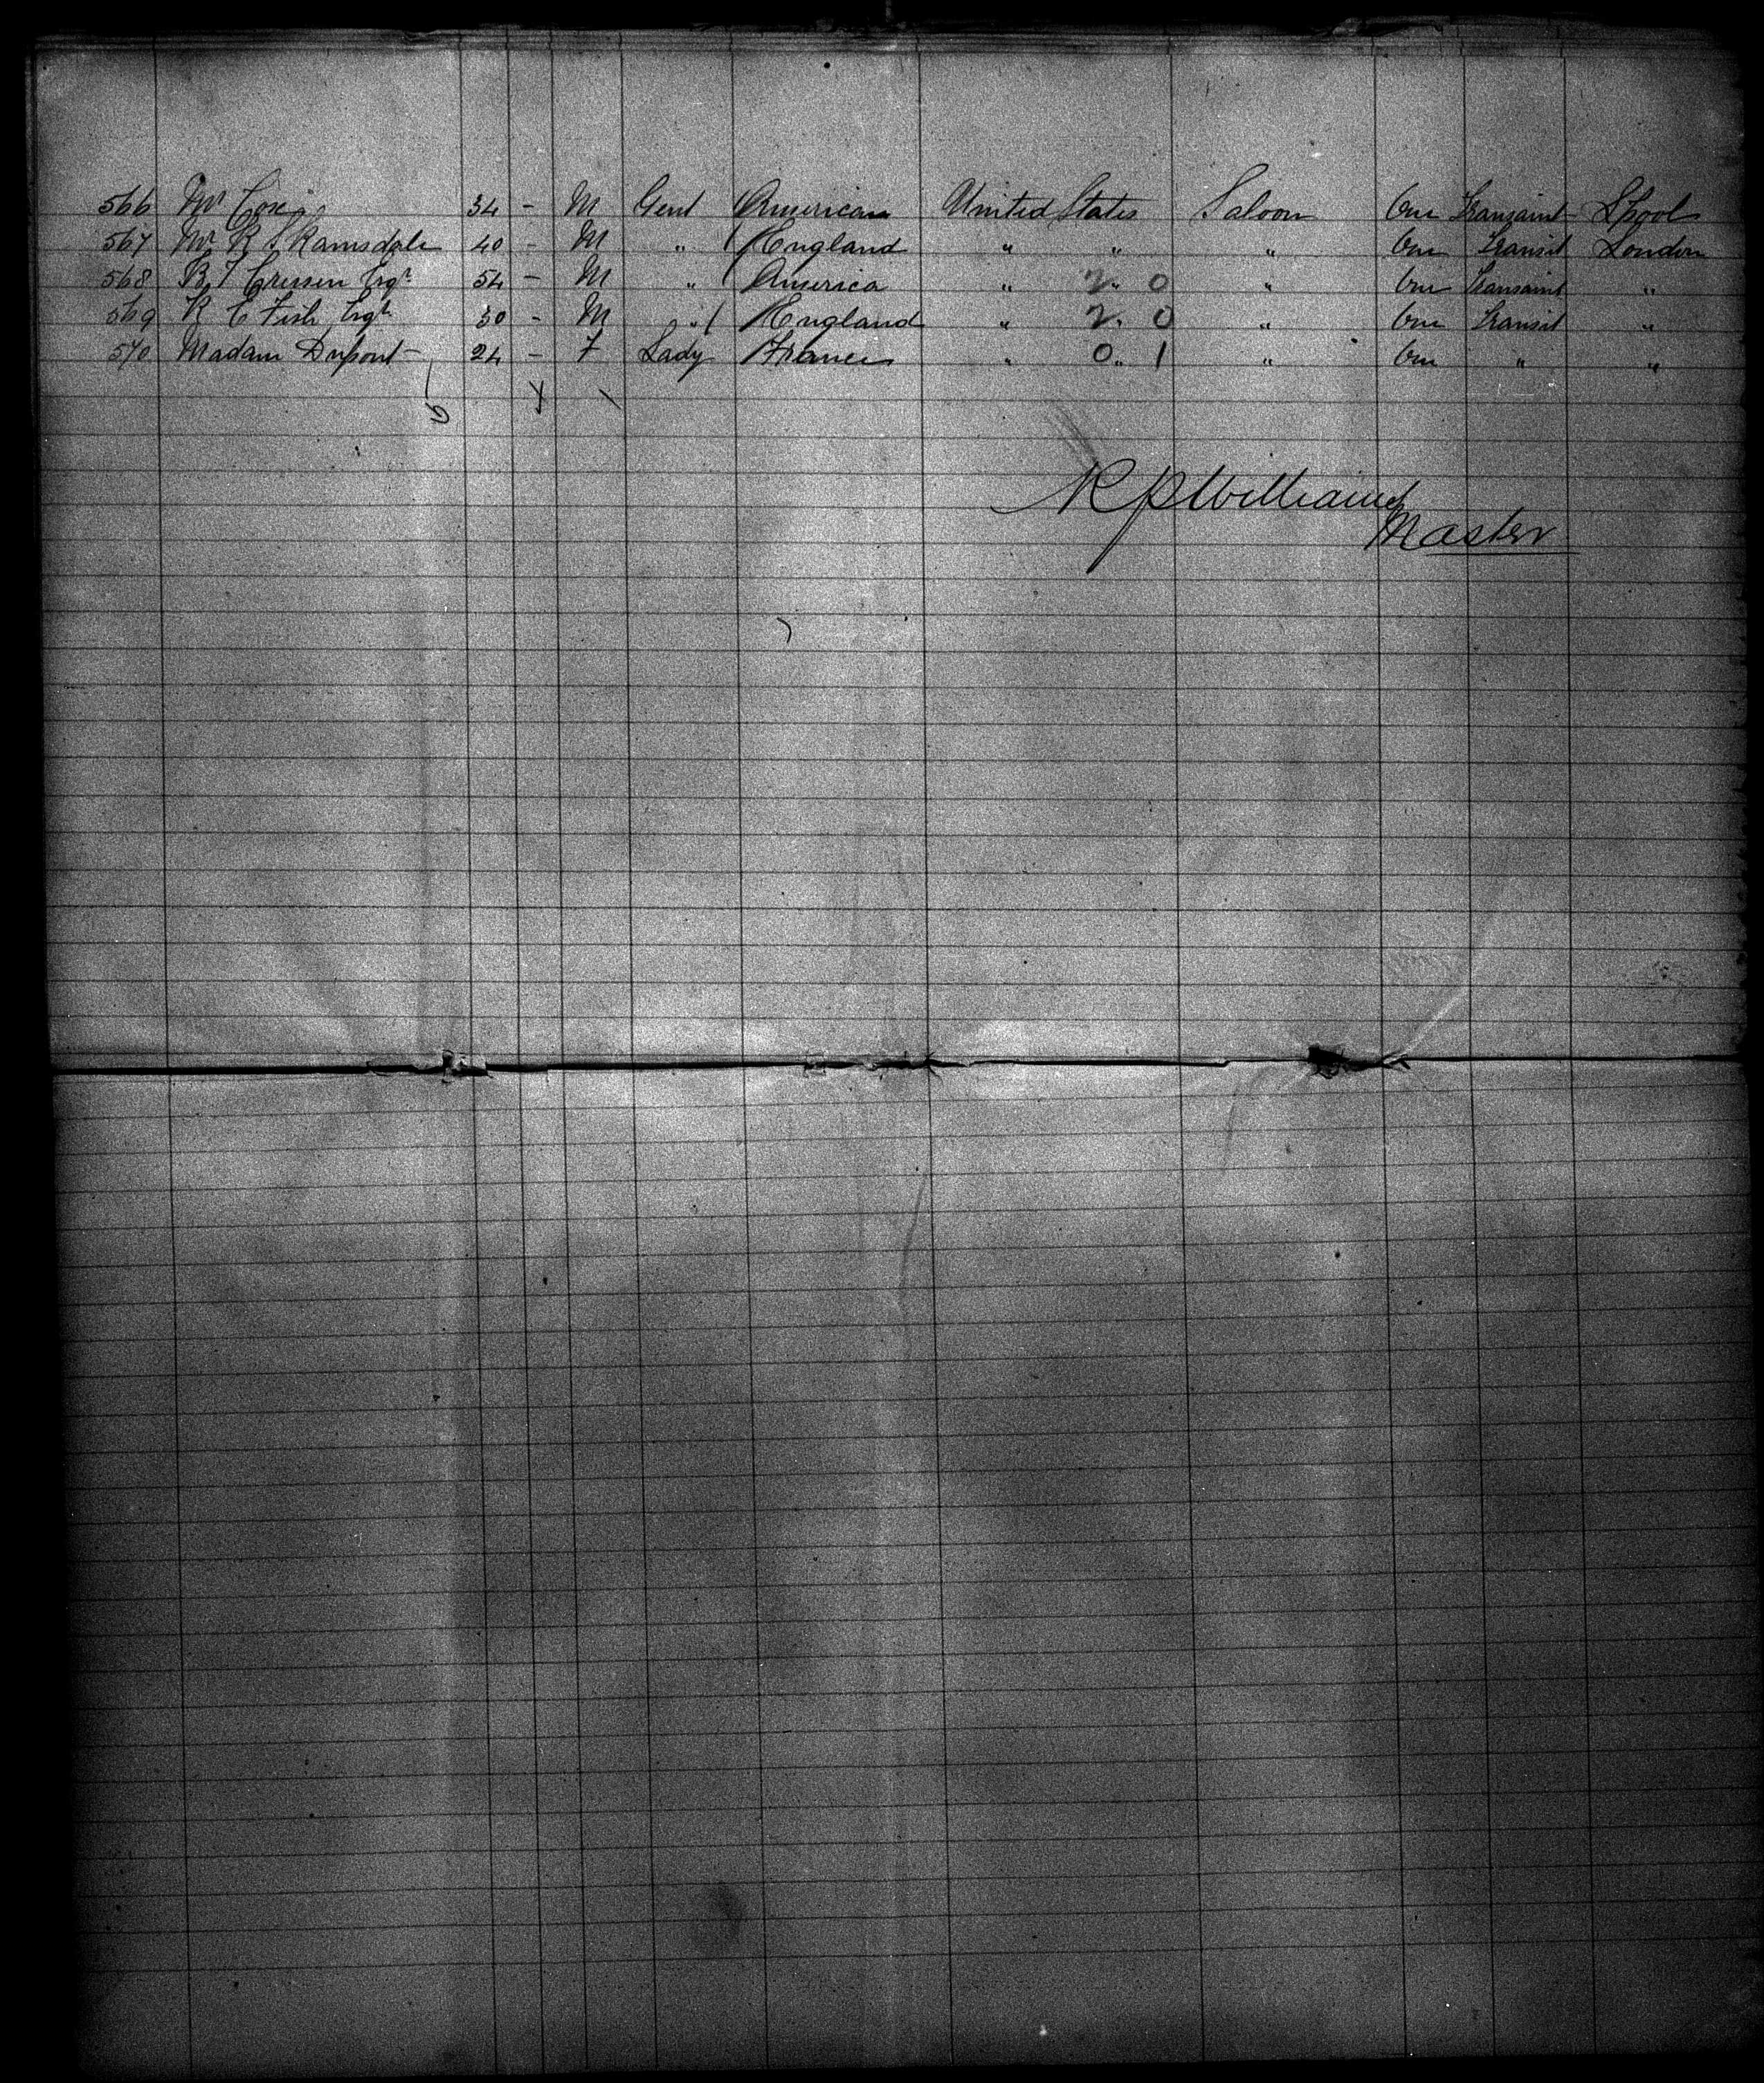 566 Mr Cox 34 - M Gent American United States Saloon One Transaint Lpool
567 Mr R S Ramsdale 40 - M " England " " " One Transit London
568 B T Cressen Esqr 54 - M " America " " 2 0 " One Transaint "
569 R C Fish Esqr 30 - M " England " " 2 0 " One Transit "
570 Madam Dupont 24 - F Lady France " " 0 1 " One " "
6 y \
R P Williams
Master